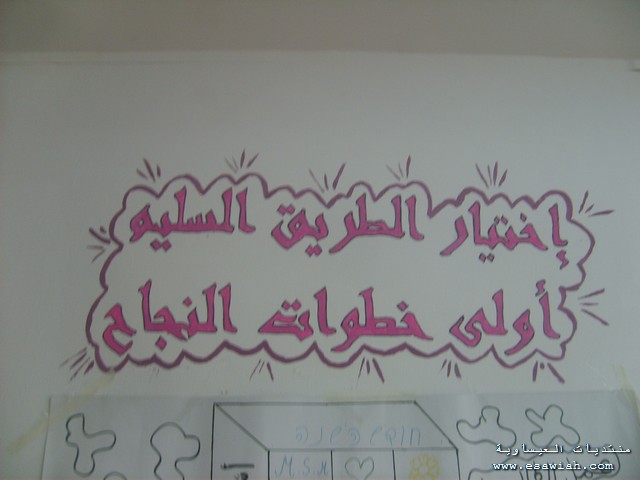 إختيار الطريق السليم
أولى خطوات النجاح
M.S.M
منتديات العيساوية
www.esawiah.com